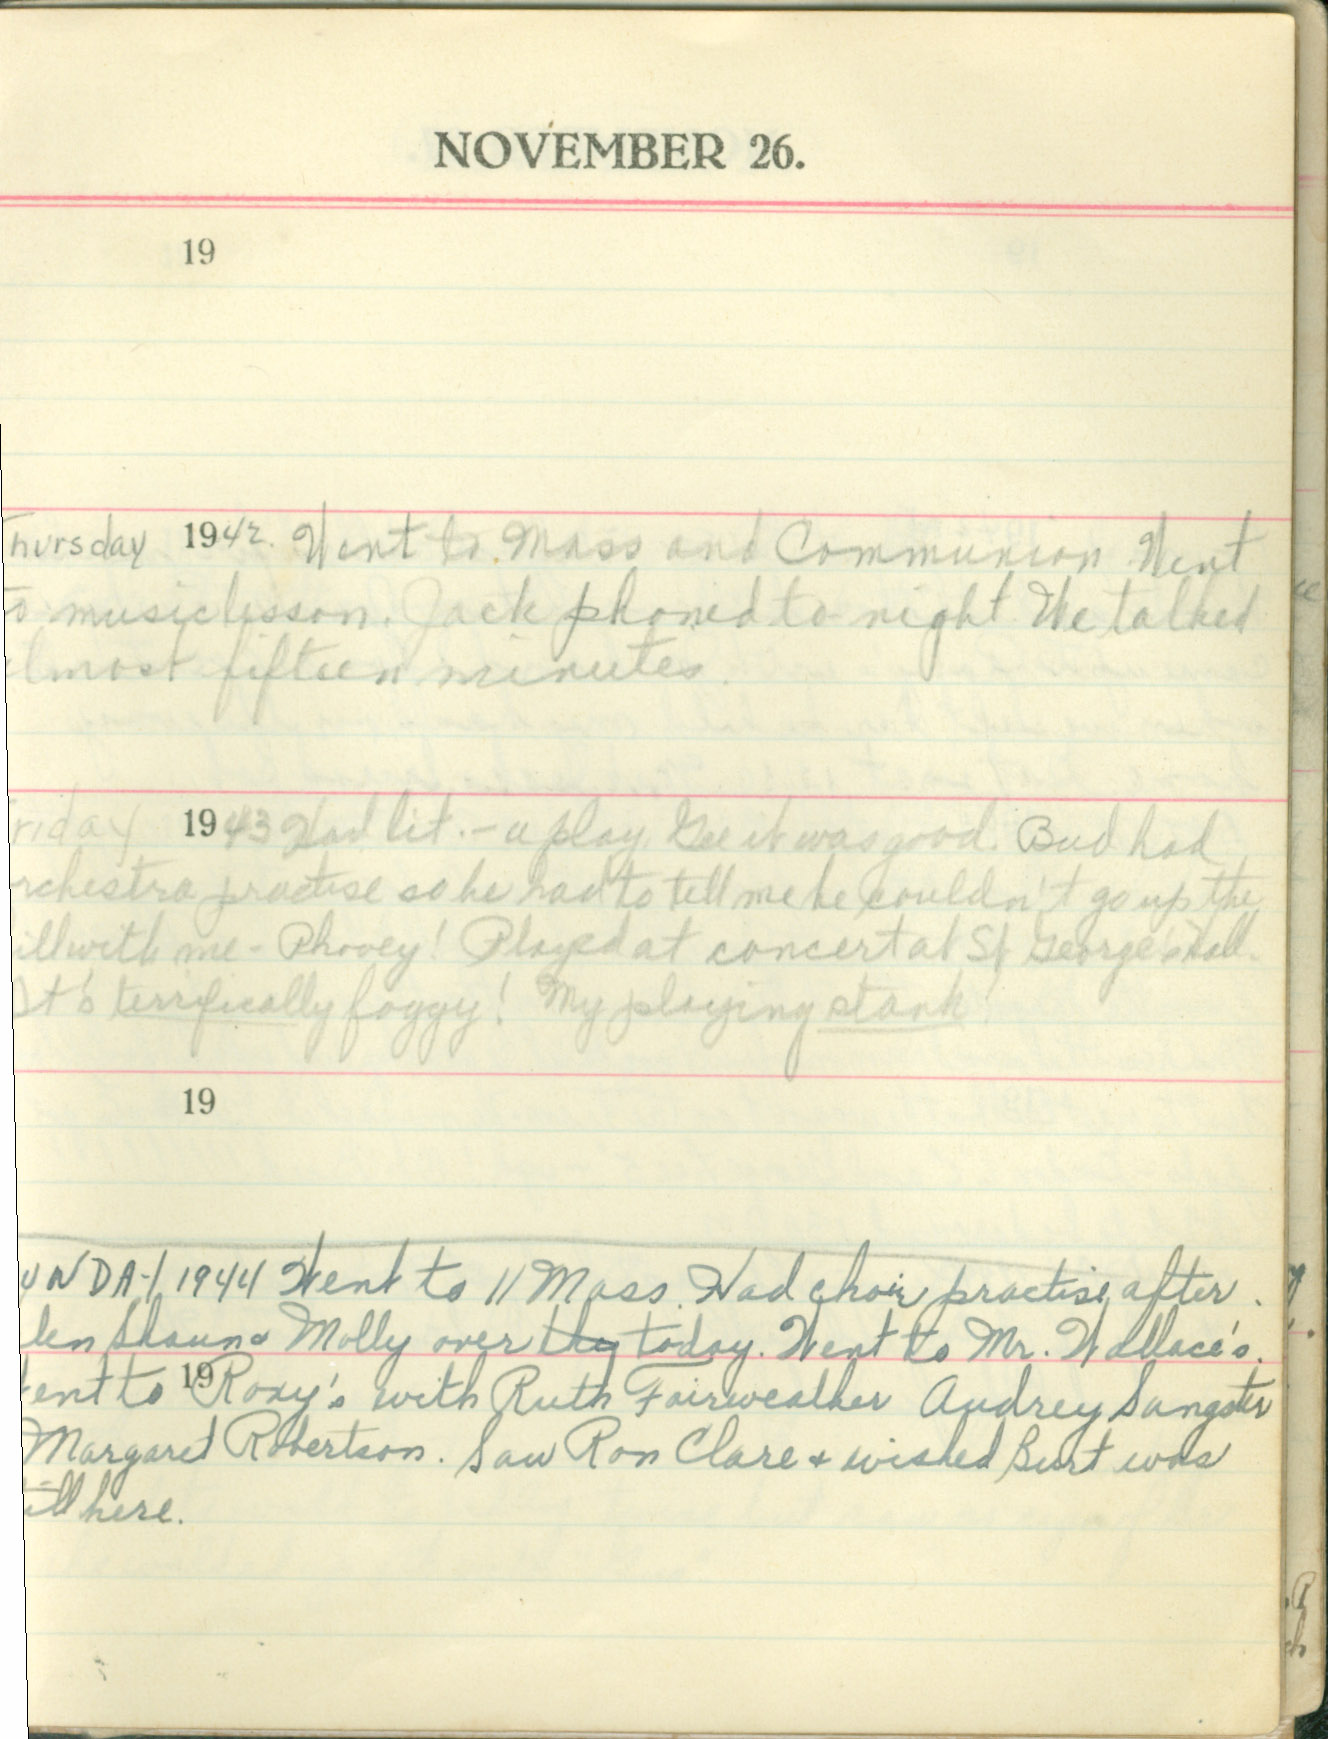 NOVEMBER 26.
19
hursday 1942. Went to Mass and Communion. Went
to music lesson. Jack phoned to-night. We talked
lmost fifteen minutes.
riday 1943 Had lit. - a play. Gee it was good. Bud had
rchestra practise so he had to tell me he couldn't go up the
ill with me - Phooey! Played at concert at St George's Hall.
It's terrifically foggy! My playing stank!
19
UNDAY 1944 Went to 11 Mass. Had choir practise after.
len Molly over they today. Went to Mr. Wallace's.
ent to 19 Roxy's with Ruth Fairweather Audrey Sangster
Margaret Robertson. Saw Ron Clare & wished Burt was
ill here.